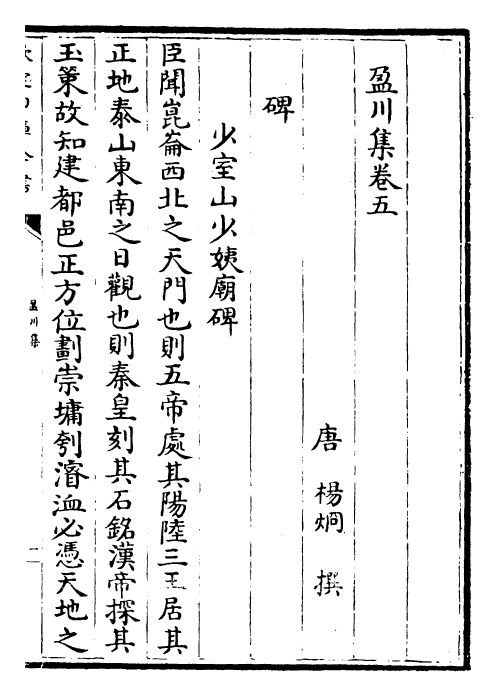 盈川集卷五
唐 楊炯 撰
碑
少室山少姨廟碑
臣聞崑崙西北之天門也則五帝處其陽陸三王居其
正地泰山東南之日觀也則秦皇刻其石銘漢帝探其
玉策故知建都邑正方位劃崇墉刳濬洫必憑天地之
盈川集
一